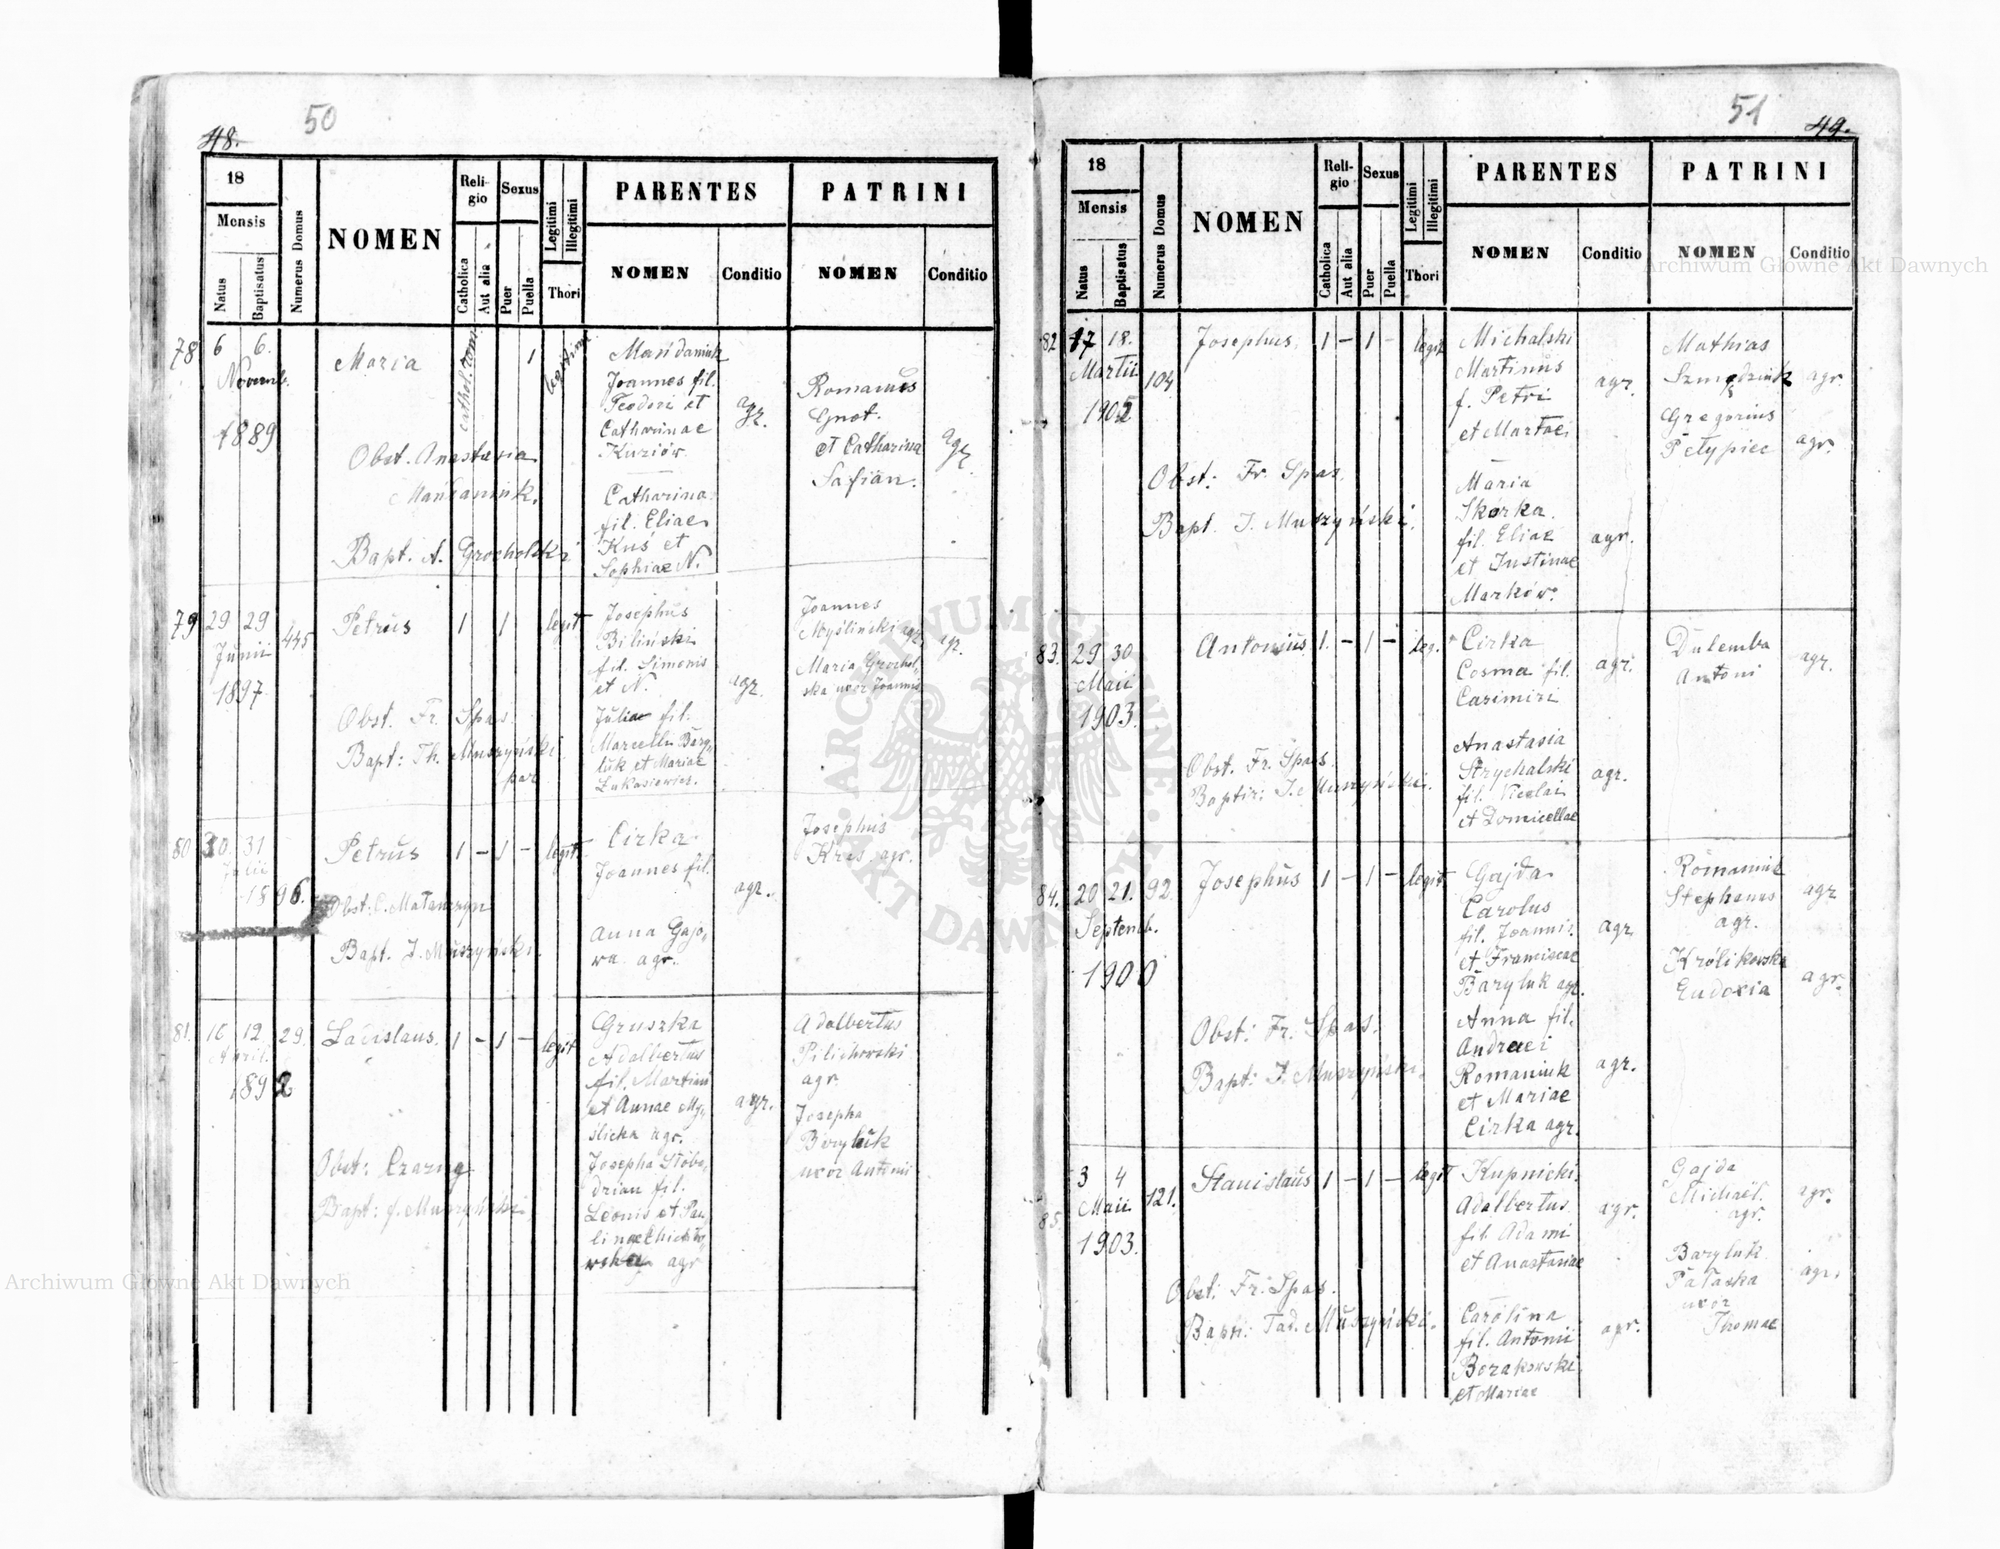 50
48.
18
Mensis
Natus
Baptisatus
Numerus Domus
NOMEN
Reli-
gio
Catholica
Aut alia
Sexus
Puer
Puella
Legitimi
Illegitimi
Thori
PARENTES
NOMEN
Conditio
PATRINI
NOMEN
Conditio
78
6 6.
Novemb.
1889
Maria
cathol. rom.
1
legitimi
Obst. Anastasia
Mańdaniuk.
Bapt. A. Grocholski
Mańdaniuk
Joannes fil.
Teodori et
Catharinae
Kuriów
Catharina
fil. Eliae
Kuś et
Sophiae N.
agr.
Romanus
Gnot.
et Catharina
Safian.
agr.
79
29 29
Junii
1897
445
Petrus
1 1
legit
Obst. Fr. Spas.
Bapt: Th. Muszyński
par
Josephus
Biliński
fil. Simonis
et N.
Julia fil.
Marcelli Bary
luk et Mariae
Łukasiewicz.
agr.
Joannes
Myśliński agr.
Maria Grochol
ska uxor Joannis
agr.
80
30 31
Julii
1896.
Petrus
1 - 1 -
legit.
Obst: C. Matanczyn
Bapt. J. Muszyński.
Cirka
Joannes fil.
Anna Gajo,
wa agr.
agr.
Josephus
Kras agr.
81.
10 12
April.
1892
29.
Ladislaus.
1 - 1 -
legit
Obst: Czarny
Bapt: J. Muszyński.
Gruszka
Adalbertus
fil. Martini
et Annae My,
ślicka agr.
Josepha Słobo,
drian fil.
Leonis et Pau
linae
agr
agr.
Adalbertus
Pilichowski
agr.
Josepha
Baryluk
uxor Antonii
51
49.
18
Mensis
Natus
Baptisatus
Numerus Domus
NOMEN
Reli-
gio
Catholica
Aut alia
Sexus
Puer
Puella
Legitimi
Illegitimi
Thori
PARENTES
NOMEN
Conditio
PATRINI
NOMEN
Conditio
82
17 18.
Martii
1905
104
Josephus.
1 - 1 -
legit
Obst: Fr. Spas.
Bapt. J. Muszyński.
Michalski
Martinus
f. Petri
et Martae
Maria
Skórka.
fil. Eliae
et Justinae
Marków.
agr.
agr.
Mathias
agr.
Gregorius
Petypiec
agr.
83.
29 30
Maii
1903.
Antonius
1. - 1 -
leg.
Obst. Fr. Spas.
Baptis: J. Muszyński.
Cirka
Cosma fil.
Casimiri
Anastasia
Strychalski
fil. Nicolai
et Domicellae
agr.
agr.
Dulemba
Antoni
agr.
84.
20 21.
Septemb.
1900
92.
Josephus
1 - 1 -
legit
Obst: Fr. Spas.
Bapt: J. Muszyński.
Gajda
Carolus
fil. Joannis
et Franciscae
Baryluk agr.
Anna fil.
Andreei
Romaniuk
et Mariae
Cirka agr.
agr.
agr.
Romaniuk
Stephanus
agr.
Królikowska
Eudoxia
agr
agr.
85.
3 4
Maii
1903.
121.
Stanislaus
1 - 1 -
legit
Obst: Fr. Spas.
Bapt: Tad. Muszyński.
Kupnicki
Adalbertus
fil Adami
et Anastasiae
Carolina
fil. Antonii
Borakowski
et Mariae
agr.
agr.
Gajda
Michaël.
agr.
Baryluk
Pałaska
uxor
Thomae
agr.
agr.
Archiwum Główne Akt Dawnych
Archiwum Główne Akt Dawnych
ARCHIWUM GŁÓWNE AKT DAWNYCH